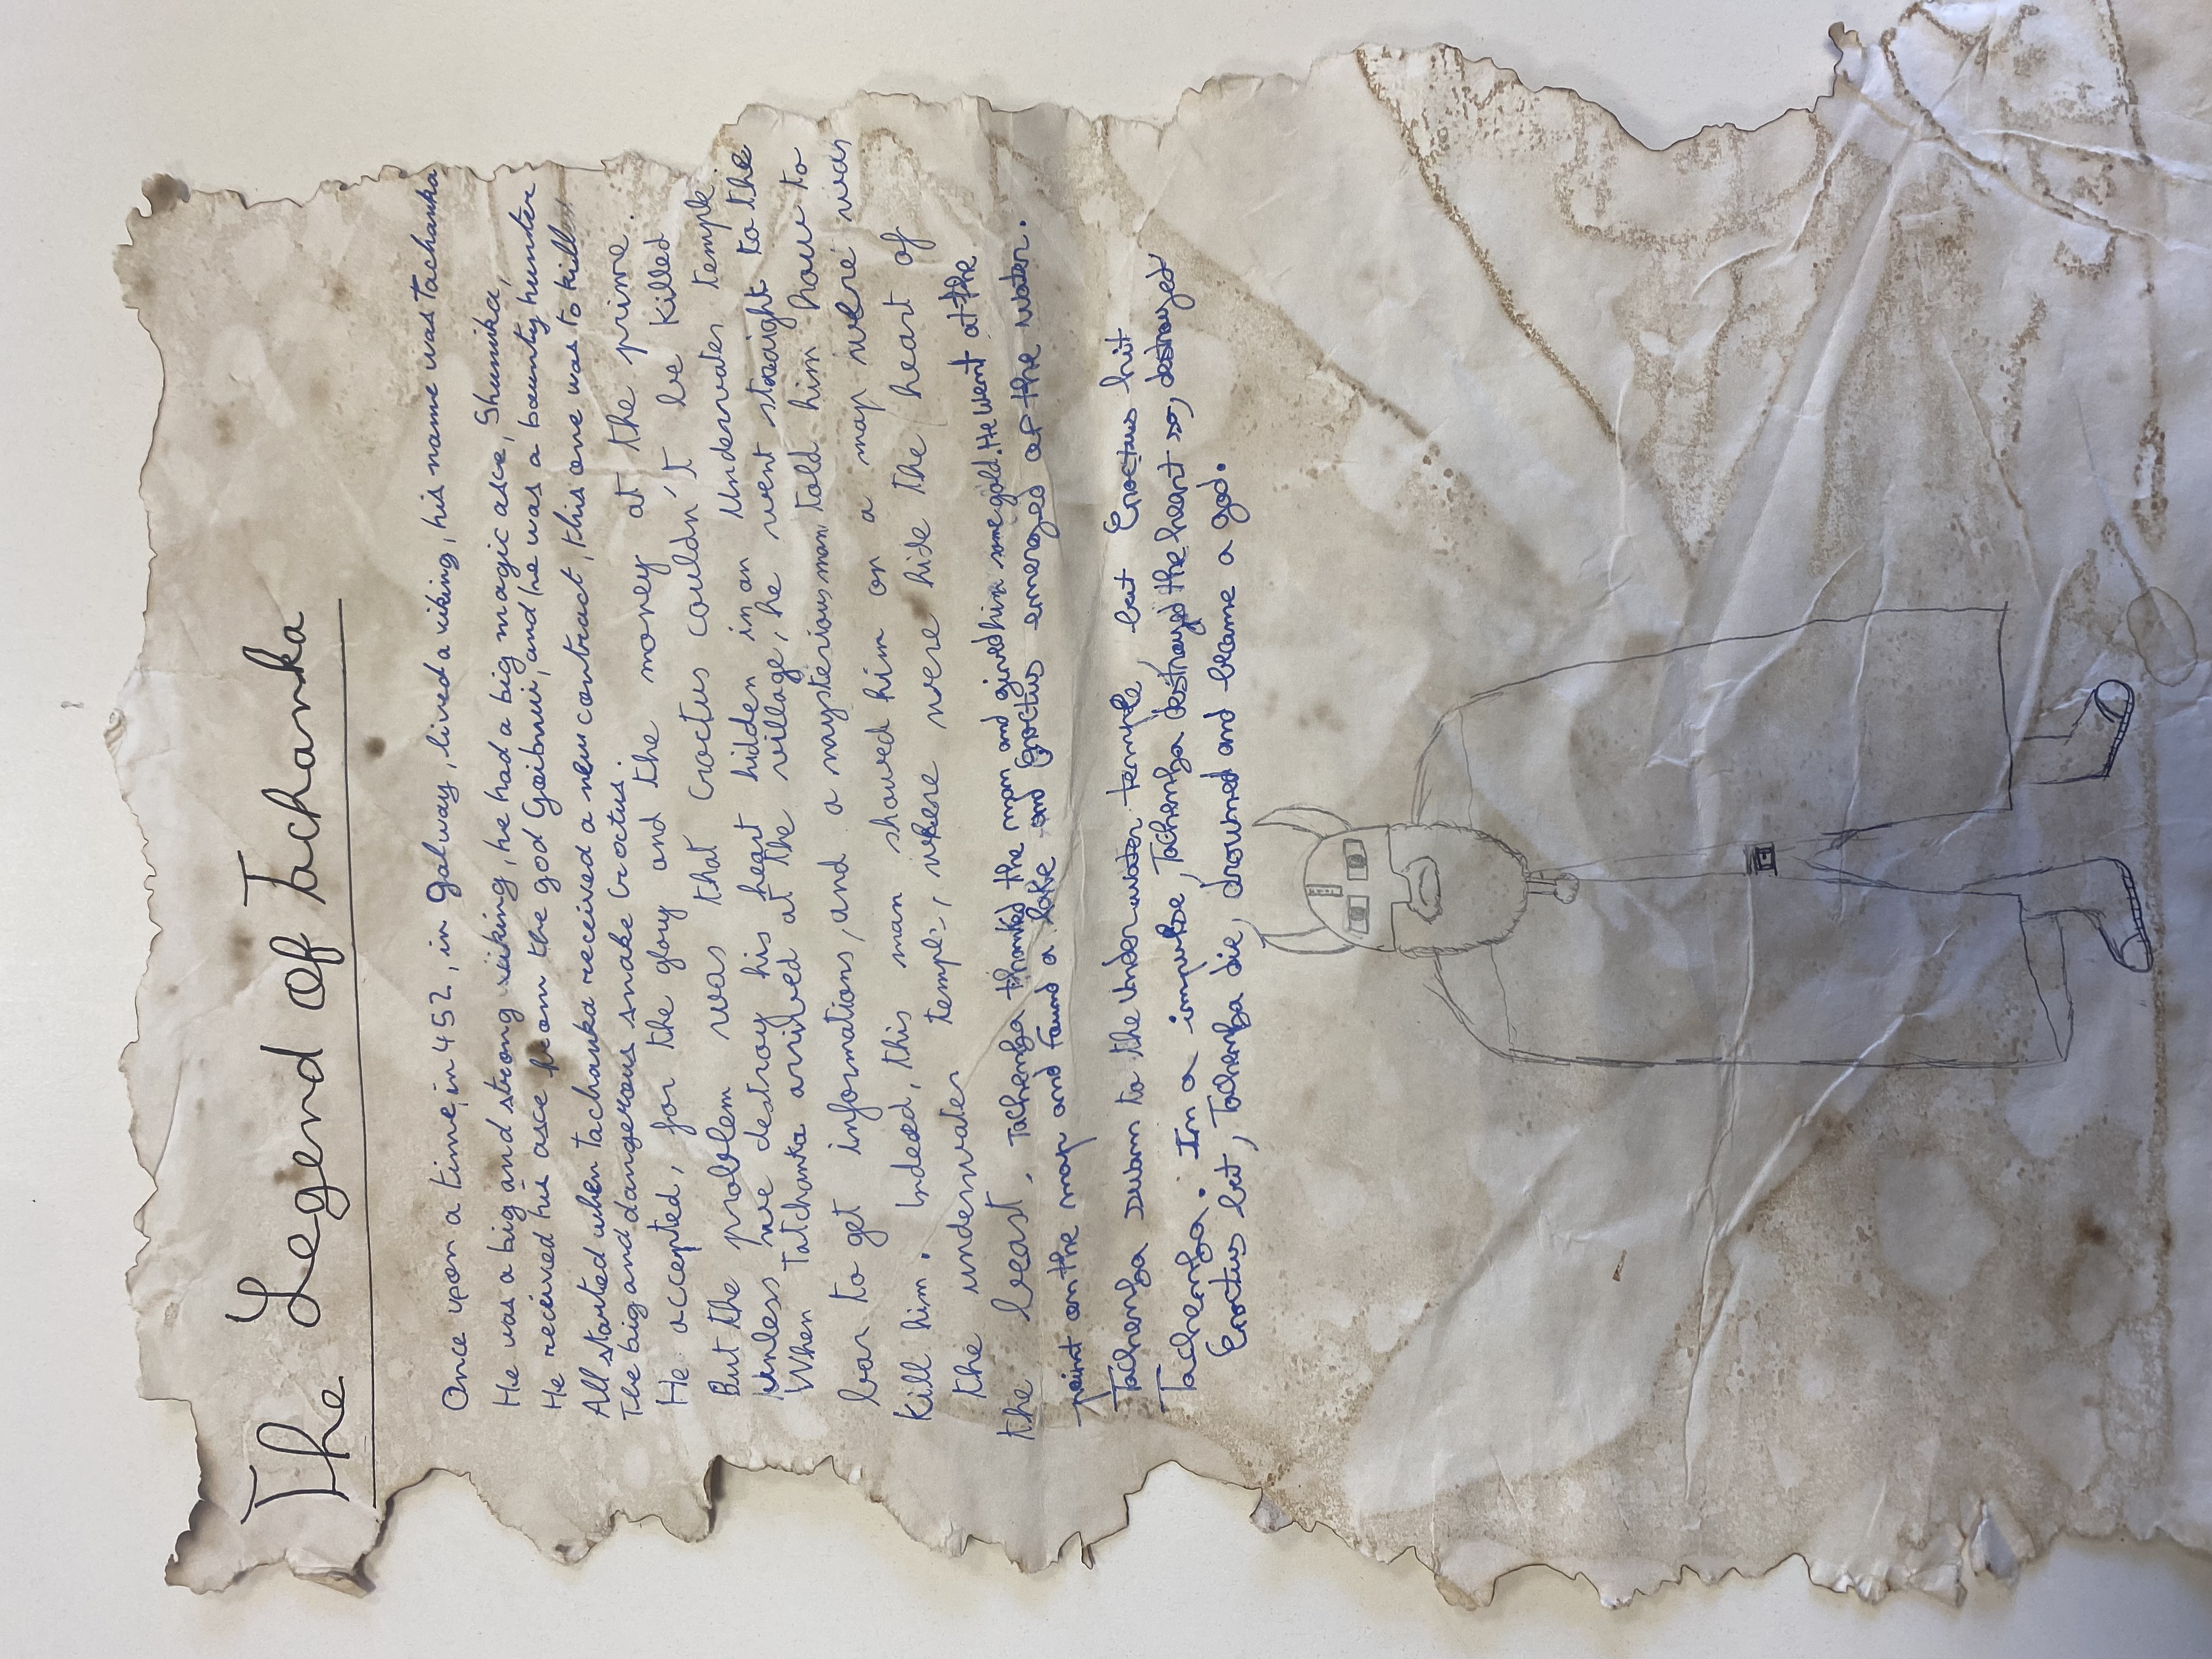 The Legend of Tachanka
Once upon a time, in 452, in Galway, lived a viking, his name was Tachanka
He was a big and strong viking, he had a big magic asce, Shunika,
He received his asce from the god Goibnui, and he was a bounty hunter
All started when Tachanka received a new contract, this one was to kill
The big and dangerous snake Croctus.
He accepted, for the glory and the money at the prime.
But the problem was that Croctus couldn't be killed
unless we destroy his heart hidden in an Underwater temple.
When Tatchanka arrived at the village, he went straight to the
bar to get informations, and a mysterious man told him how to
kill him. Indeed, this man showed him on a map were was
the underwater temple, where were hide the heart of
the beast. Tachenka thanked the man and gived him some gold. He went at the
point on the map and found a lake and Croctus emerged of the water.
Tachenka swam to the Underwater temple, but Croctus hit
Tachenka. In a impulse, Tachenka destroyed the heart so, destroyed
Croctus but, Tachenka die, drowned and became a god.